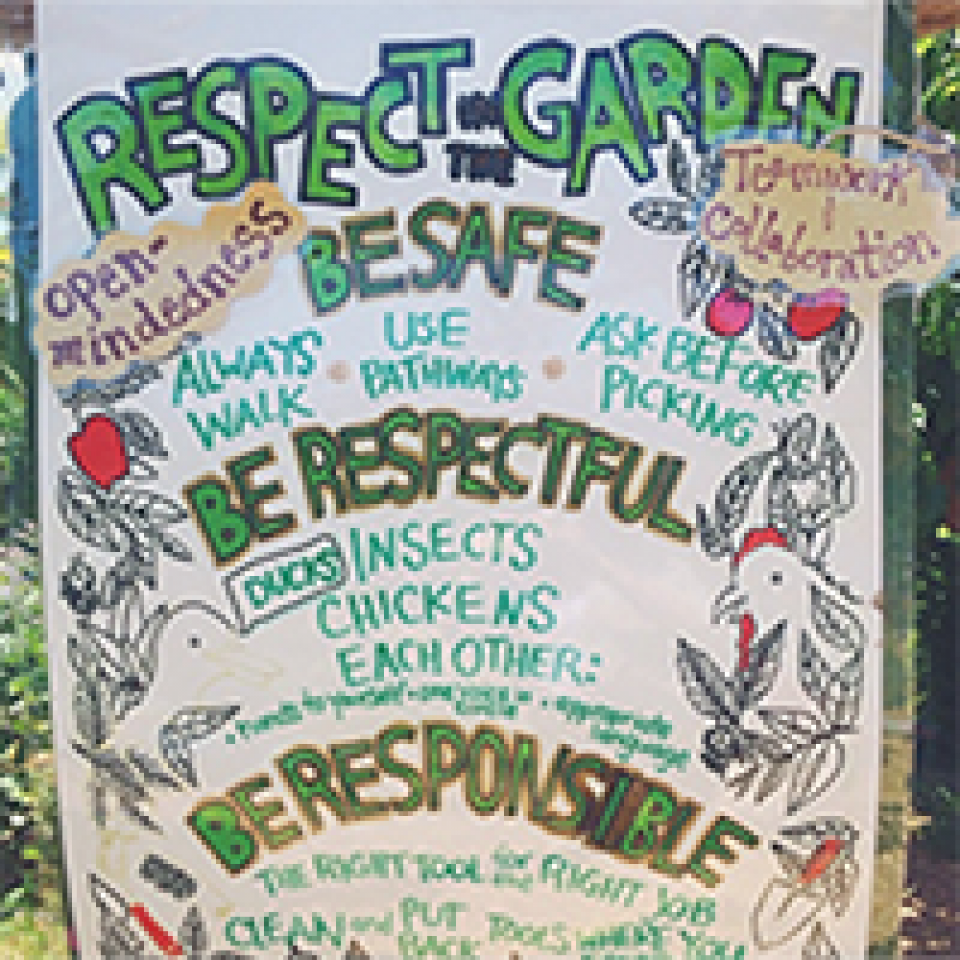 RESPECT IN THE GARDEN
OPEN-
mindedness
Teamwork
&
Collaboration
BE SAFE
ALWAYS
WALK
USE
PATHWAYS
ASK BEFORE
PICKING
BE RESPECTFUL
DUCKS INSECTS
CHICKENS
EACH OTHER:
• Hands to yourself • one voice in
circle • appropriate
language!
BE RESPONSIBLE
THE RIGHT TOOL for the RIGHT JOB
CLEAN and PUT
BACK
TOOLS WHERE YOU